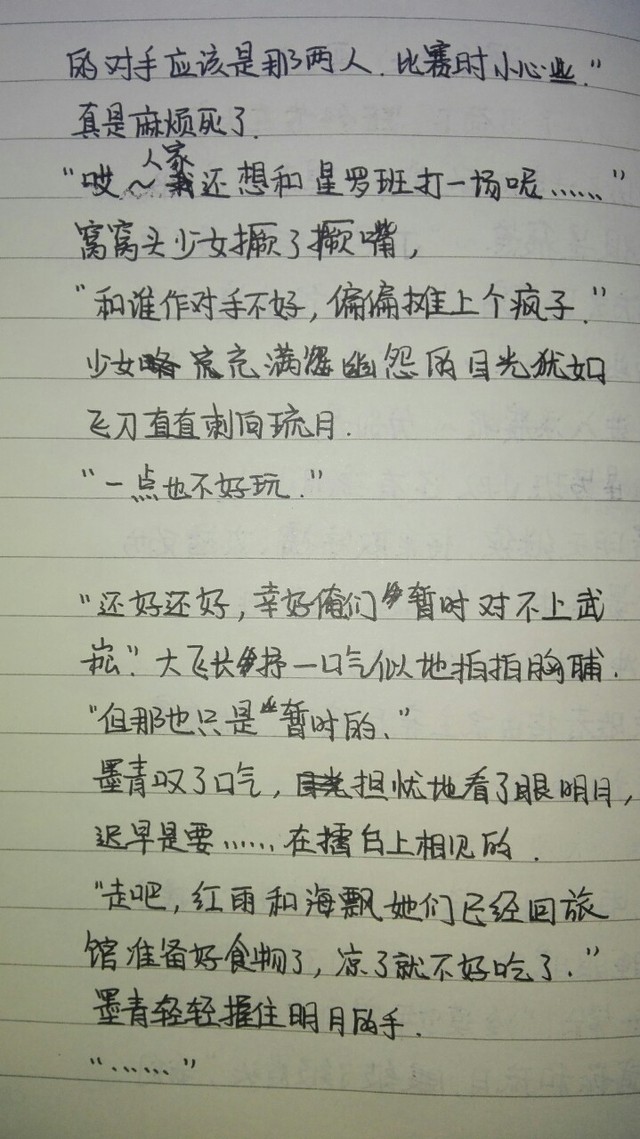 的对手应该是那两人.比赛时小心些."
真是麻烦死了.
"哎~人家还想和星罗班打一场呢……"
窝窝头少女撅了撅嘴,
"和谁作对手不好,偏偏摊上个疯子."
少女充满幽怨的目光犹如
飞刀直直刺向琉月.
"一点也不好玩."
"还好还好,幸好俺们暂时对不上武
崧."大飞长抒一口气似地拍拍胸脯.
"但那也只是暂时的."
墨青叹了口气,担忧地看了眼明月,
迟早是要……在擂台上相见的.
"走吧,红雨和海飘她们已经回旅
馆准备好食物了,凉了就不好吃了."
墨青轻轻握住明月的手.
"……"